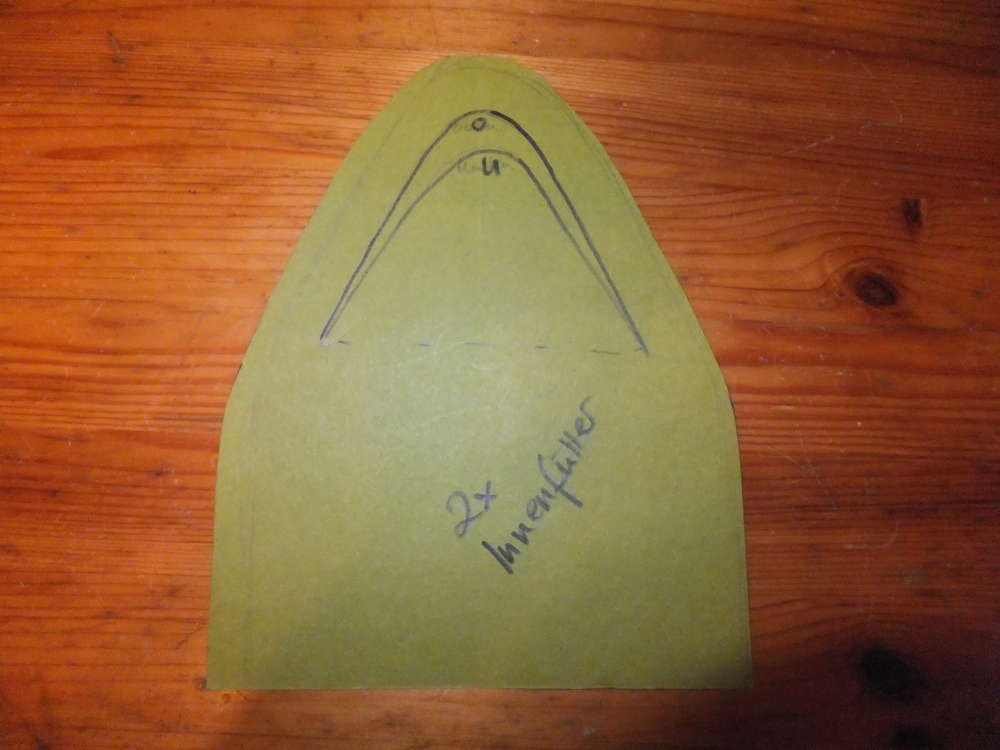 O
U
2x
Innenfutter